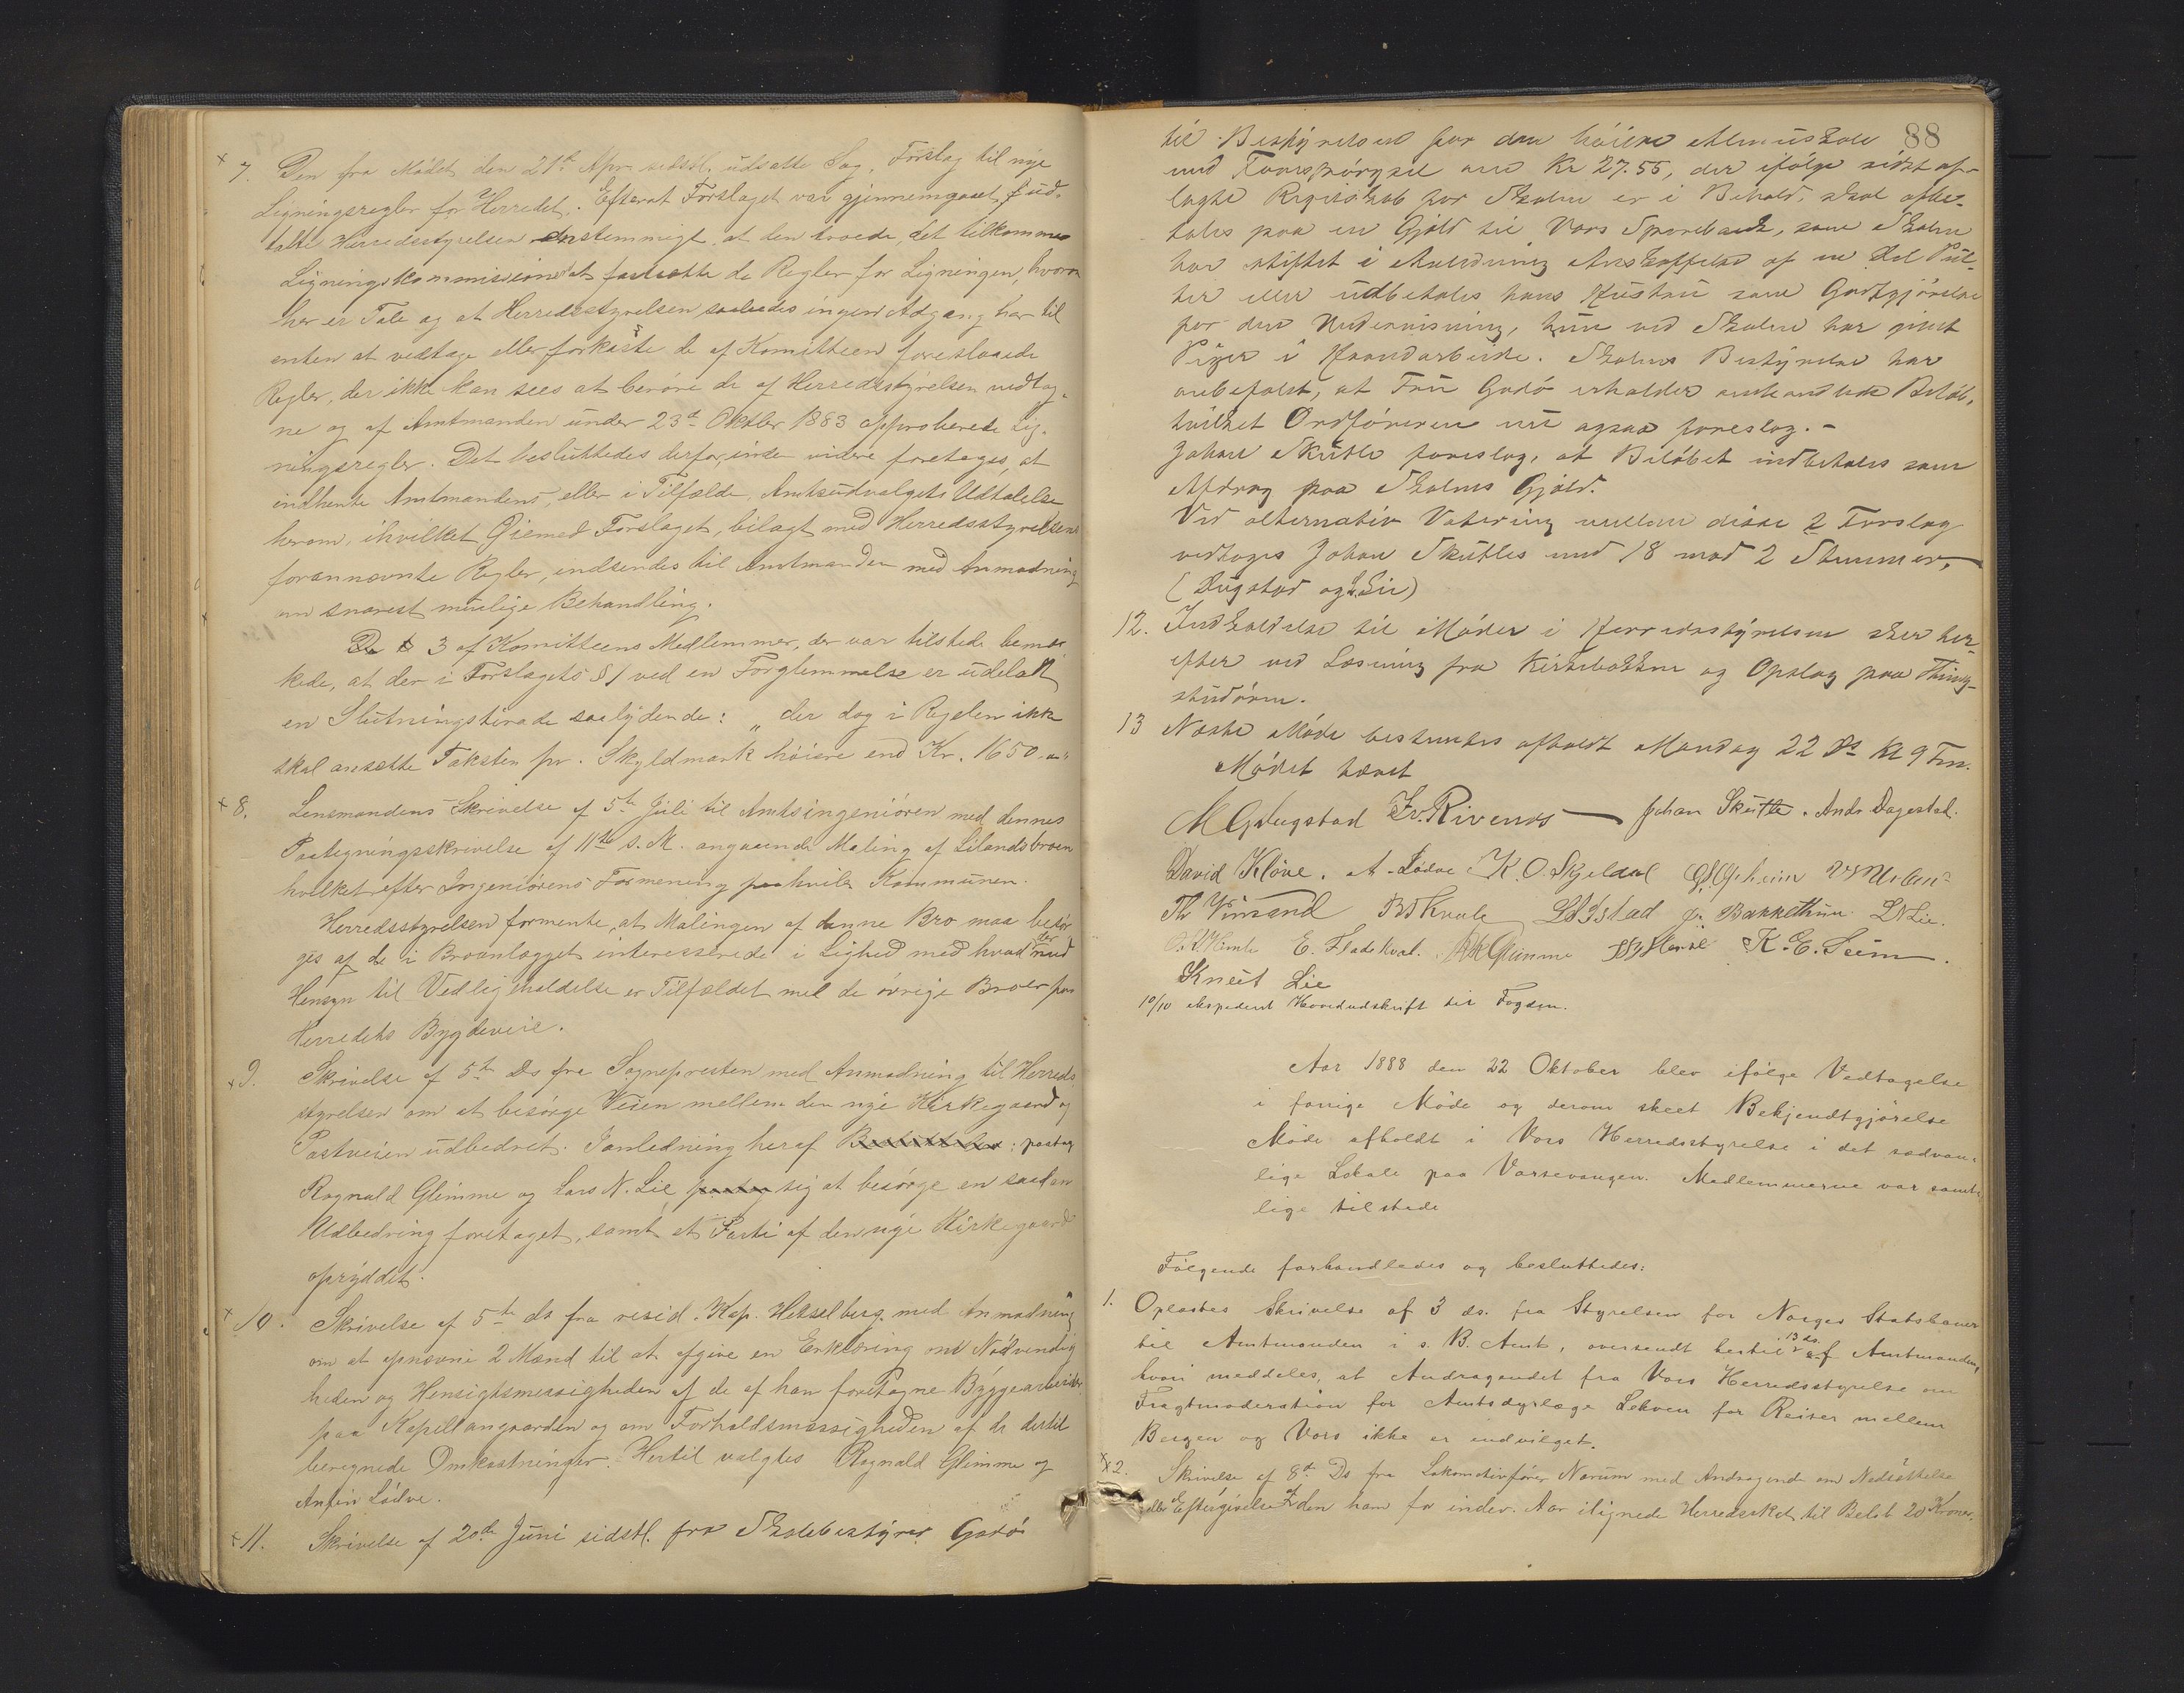 x 7. Den fra Mödet den 21de Apr. sidstl. udsatte Sag, Forslag til nye
Ligningsregler for Herredet. Efterat Forslaget var gjennemgaaet, ud-
talte Herredsstyrelsen enstemmigt, at den troede, det tilkommer
Ligningskommissionen at fastsætte de Regler for Ligningen, hvorom
her er Tale og at Herredsstyrelsen saaledes ingen Adgang har til
enten at vedtage eller forkaste de af Komitteen foreslaaede
Regler, der ikke kan sees at beröre de af Herredsstyrelsen vedtag-
ne og af Amtmanden under 23de Oktbr 1883 approberede Lig-
ningsregler. Det besluttedes derfor, inden videre foretages, at
indhente Amtmandens, eller i Tilfælde, Amtsudvalgets Udtalelse
herom, i hvilket Öiemed Forslaget, bilagt med Herredsstyrelsens
forannævnte Regler, indsendes til Amtmanden med Anmodning
om snarest mulige Behandling.
De 3 af Komitteens Medlemmer, der var tilstede bemær-
kede, at der i Forslagets § 1 ved en Forglemmelse er udeladt
en Slutningstirade saalydende: „der dog i Regelen ikke
skal ansætte Taksten pr. Skyldmark höiere end Kr. 1650 -"
x 8. Lensmandens Skrivelse af 5te Juli til Amtsingeniören med dennes
Paategningsskrivelse af 11te s. M. angaaende Maling af Lilandsbroen
hvilket efter Ingeniörens Formening paahviler Kommunen.
Herredsstyrelsen formente, at Malingen af denne Bro maa besör-
ges af de i Broanlægget interesserede i Lighed med hvad der med
Hensyn til Vedligeholdelse er Tilfældet med de övrige Broer paa
Herredets Bygdeveie.
x 9. Skrivelse af 5te Ds fra Sognepresten med Anmodning til Herreds-
styrelsen om at besörge Veien mellem den nye Kirkegaard og
Postveien udbedret. I anledning heraf Besluttedes: paatog
Ragnald Glimme og Lars N. Lie paatog sig at besörge en saadan
Udbedring foretaget, samt et Parti af den nye Kirkegaard
opryddet.
x 10. Skrivelse af 5te ds fra resid. Kap. Hesselberg med Anmodning
om at opnævne 2 Mænd til at afgive en Erklæring om Nödvendig
heden og Hensigtsmessigheden af de af ham foretagne Byggearbeider
paa Kapellangaarden og om Forholdsmæssigheden af de dertil
beregnede Omkostninger. Hertil valgtes Ragnald Glimme og
Anfin Lödve.
x 11. Skrivelse af 20de Juni sidstl. fra Skolebestyrer Gadö
88
til Bestyrelsen for den höiere Almueskole
med Forespörgsel om Kr 27.55, der ifölge sidst af-
lagte Regnskab for Skolen er i Behold, skal afbe-
tales paa en Gjæld til Vors Sparebank, som Skolen
har stiftet i Anledning Anskaffelse af en Del Pul-
ter eller udbetales hans Hustru som Godtgjörelse
for den Undervisning, hun ved Skolen har givet
Piger i Haandarbeide. Skolens Bestyrelse har
anbefalet, at Fru Gadö erholder omhandlede Belöb,
hvilket Ordföreren nu ogsaa foreslog. -
Johan Skutle foreslog, at Belöbet indbetales som
Afdrag paa Skolens Gjæld.
Ved alternativ Votering mellem disse 2 Forslag
vedtoges Johan Skutles med 18 mod 2 Stemmer,
(Dugstad og L. Lie)
12. Indkaldelse til Möder i Herredsstyrelsen sker her-
efter ved Læsning fra Kirkebakken og Opslag paa Thing-
studören.
13 Næste Möde bestemtes afholdt Mandag 22 Ds Kl 9 Fm.
Mödet hævet
M G Dugstad Iv. Rivenes Johan Skutle. Ands Dagestad.
David Klöve. A. Lödve K. O. Skjeldal O. Opheim
Th Vinsand B Kvale Ystad Jr. Bakkethun L N Lie.
O. K. Himle E. Fladekval. R K Glimme K. E. Seim.
Knut Lie
10/10 expederet Hovedudskrift til Fogden.
Aar 1888 den 22 Oktober blev ifölge Vedtagelse
i forrige Möde og derom skeet Bekjendtgjörelse
Möde afholdt i Vors Herredsstyrelse i det sædvan-
lige Lokale paa Vossevangen. Medlemmerne var samt-
lige tilstede
Fölgende forhandledes og besluttedes:
1. Oplæstes Skrivelse af 3 ds. fra Styrelsen for Norges Statsbaner
til Amtmanden i s. B. Amt, oversendt hertil 13 ds. af Amtmanden,
hvori meddeles, at Andragendet fra Vors Herredsstyrelse om
Fragtmoderation for Amtsdyrlæge Lekven for Reiser mellem
Bergen og Vors ikke er indvilget.
x 2. Skrivelse af 8de Ds fra Lokomotivförer Narum med Andragende om Nedsættelse
eller Eftergivelse af den ham for indev. Aar ilignede Herredsskat til Belöb 20 Kroner.